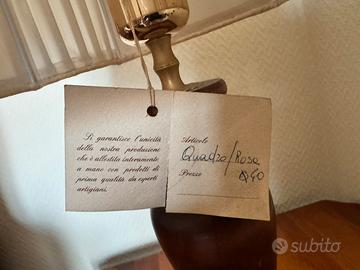 Si garantisce l'unicità
della nostra produzione
che è allestita interamente
a mano con prodotti di
prima qualità da esperti
artigiani.
Articolo
Quadro/Rosa
Prezzo
40
subito